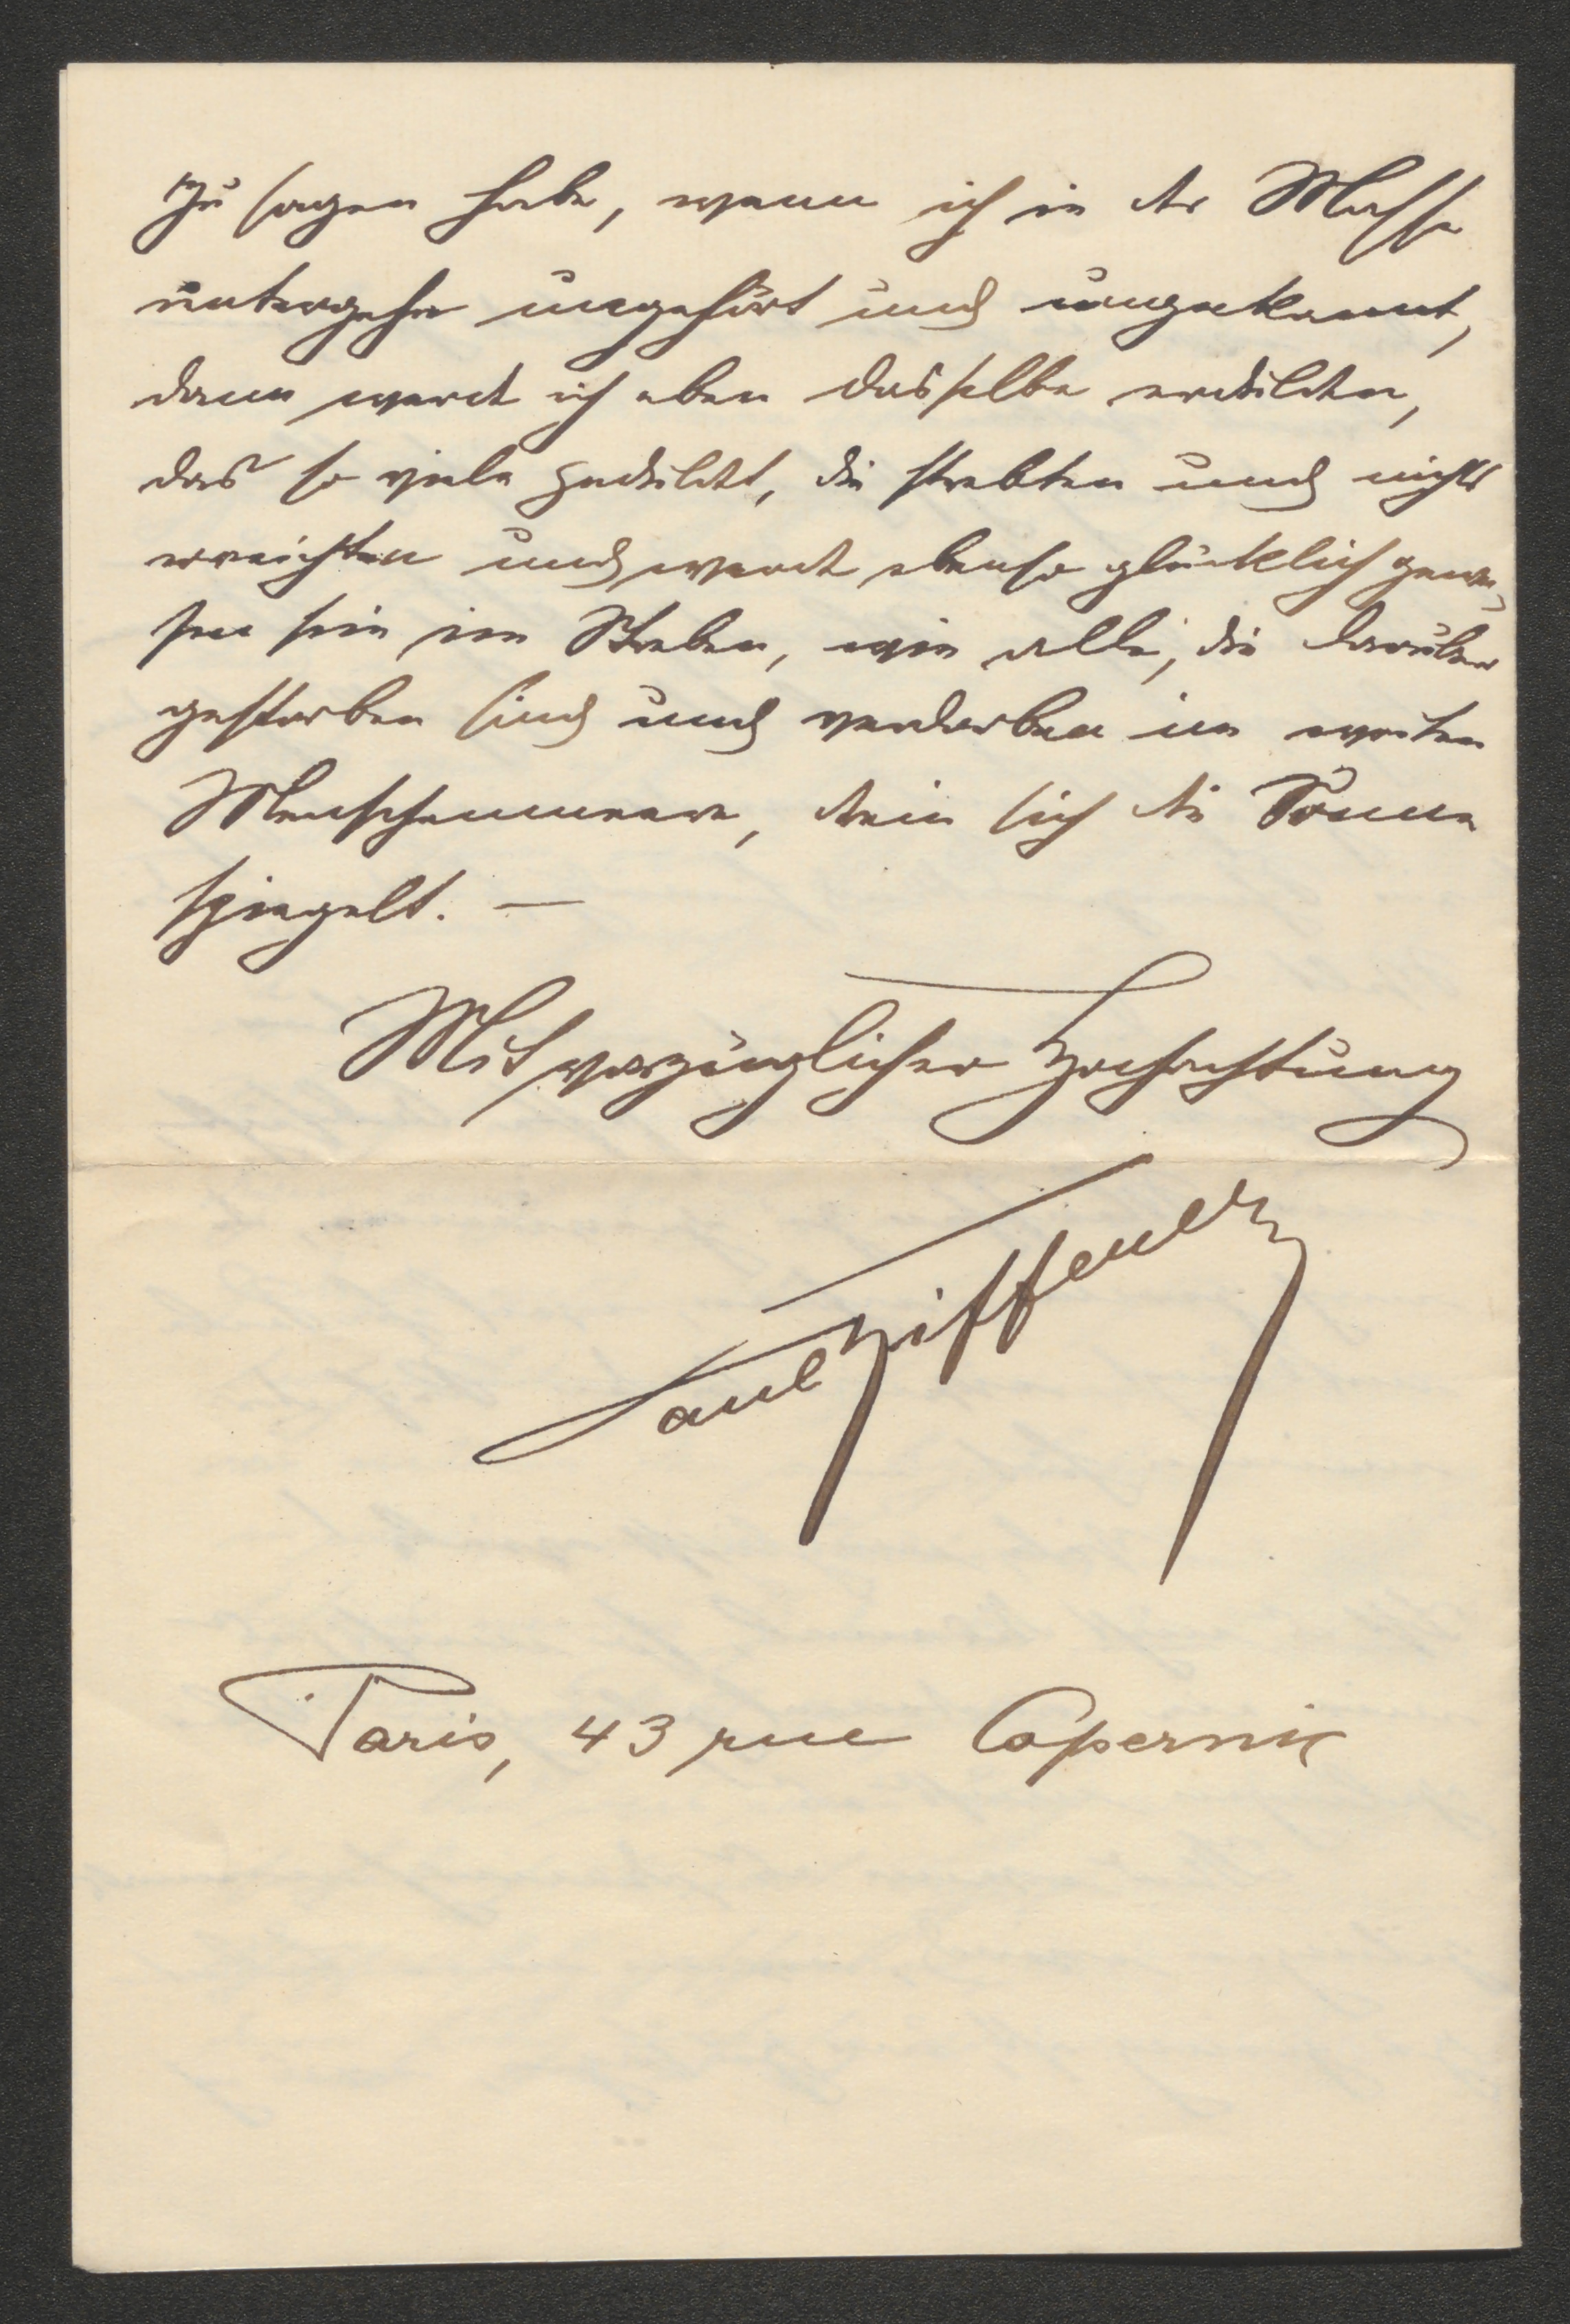 zu sagen habe, wenn ich in der Masse
untergehe ungehört und ungekannt,
dann werde ich eben dasselbe erdulden,
das so viele geduldet, die strebten und nichts
erreichten und werde ebenso glücklich gewe-
sen sein im Streben, wie alle, die darüber
gestorben sind und verdorben im weiten
Menschenmeere, drin sich die Sonne
spiegelt. —
Mit vorzüglicher Hochachtung
Paul Zifferer
Paris, 43 rue Copernic